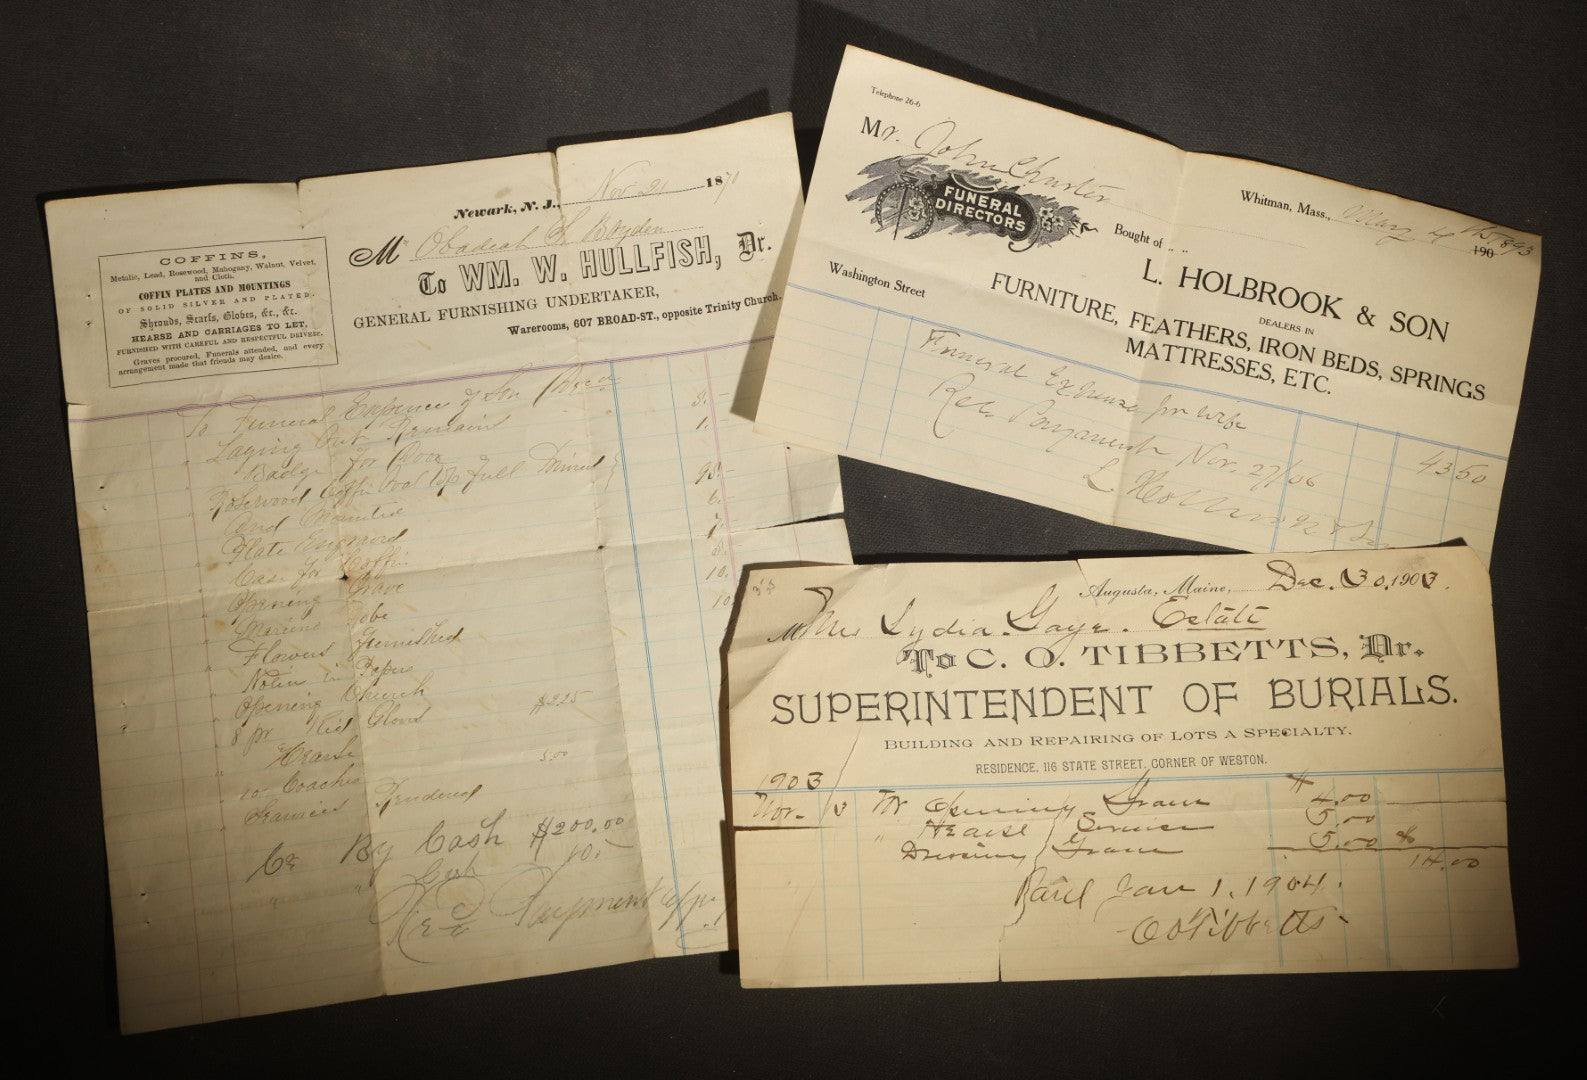 Newark, N. J., Nov 21 1871
Mr Obadiah S. Boyden
To WM. W. HULLFISH, Dr.
GENERAL FURNISHING UNDERTAKER,
Warerooms, 607 BROAD-ST., opposite Trinity Church.
COFFINS,
Metalic, Lead, Rosewood, Mahogany, Walnut, Velvet,
and Cloth.
COFFIN PLATES AND MOUNTINGS
OF SOLID SILVER AND PLATED.
Shrouds, Scarfs, Globes, &c., &c.
HEARSE AND CARRIAGES TO LET,
FURNISHED WITH CAREFUL AND RESPECTFUL DRIVERS.
Graves procured, Funerals attended, and every
arrangement made that friends may desire.
To Funeral Expence of Son
Laying Out Remains 3.-
Badge for Door 1.-
Rosewood Coffin Oval Top full
And Mounted 95.-
Plate Engraved 6.-
Case for Coffin 7.-
Opening Grave 8.
Robe 10.
Flowers Furnished 10
Notice in Papers
Opening Church
8 pr Kid Gloves $2.25
Hearse
10 Coaches 5.00
Services Rendered
Cr By Cash $200.00
" Cash 10.-
Rec Payment
Telephone 26-6
Mr. John Christer
FUNERAL
DIRECTORS
Whitman, Mass., May 4 190
Bought of
L. HOLBROOK & SON
Washington Street
DEALERS IN
FURNITURE, FEATHERS, IRON BEDS, SPRINGS
MATTRESSES, ETC.
Funeral Expense for wife 43.50
Rec Payment Nov. 27/06
Augusta, Maine, Dec. 30, 1903.
Mrs Lydia. Gage. Estate
To C. O. TIBBETTS, Dr.
SUPERINTENDENT OF BURIALS.
BUILDING AND REPAIRING OF LOTS A SPECIALTY.
RESIDENCE, 116 STATE STREET, CORNER OF WESTON.
1903
Nov. 3 For Opening Grave $4.00
" Hearse Service 5.00
Grave 5.00 $
14.00
Paid Jan 1, 1904.
C O Tibbetts